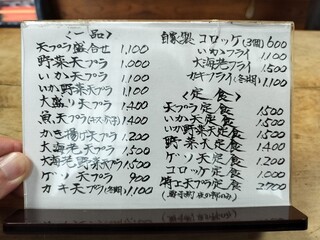 〈一品〉
天プラ盛合せ 1,100
野菜天プラ 1,000
いか天プラ 1,100
いか野菜天プラ 1,100
大盛り天プラ 1,400
魚天プラ(キス・穴子) 1,400
かき揚げ天プラ 1,200
大海老天プラ 1,500
大海老野菜天プラ 1,500
ゲソ天プラ 900
カキ天プラ(冬期) 1,100
自家製コロッケ(3個) 600
いかフライ 1,100
大海老フライ 1,500
カキフライ(冬期) 1,100
〈定食〉
天プラ定食 1,500
いか天定食 1,500
いか野菜天定食 1,500
野菜天定食 1,400
ゲソ天定食 1,200
コロッケ定食 1,000
特上天プラ定食 2,700